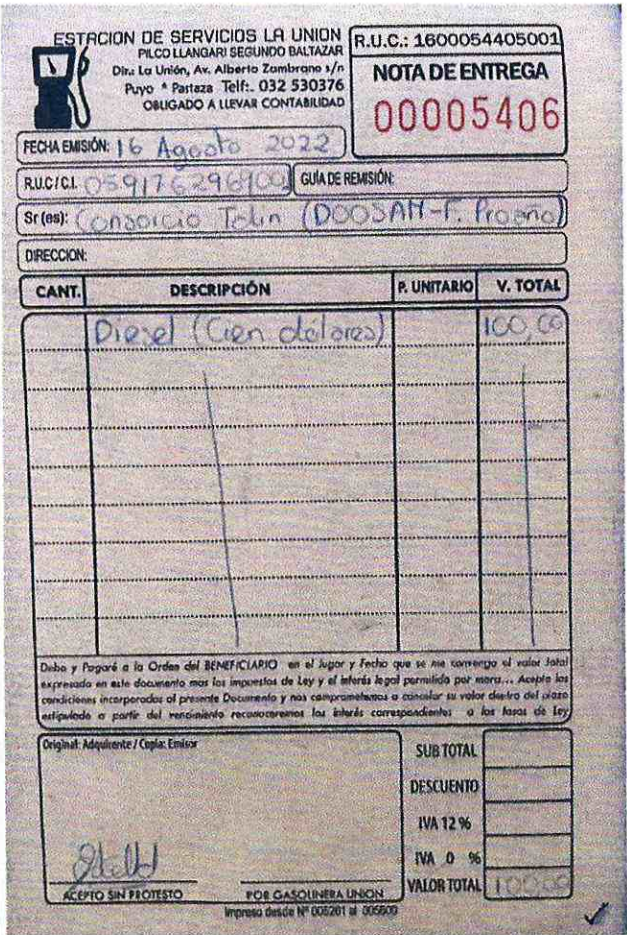 ESTACION DE SERVICIOS LA UNION
PILCO LLANGARI SEGUNDO BALTAZAR
Dir.: La Unión, Av. Alberto Zambrano s/n
Puyo * Pastaza Telf:. 032 530376
OBLIGADO A LLEVAR CONTABILIDAD
R.U.C.: 1600054405001
NOTA DE ENTREGA
00005406
FECHA EMISIÓN: 16 Agosto 2022
R.U.C / C.I. GUÍA DE REMISIÓN:
Sr (es): Consorcio (DOOSAN-F. Proaño)
DIRECCION:
CANT. DESCRIPCIÓN P. UNITARIO V. TOTAL
Diesel (Cien dólares) 100,00
Debo y Pagaré a la Orden del BENEFICIARIO en el lugar y Fecha que se me convenga el valor total
expresado en este documento mas los impuestos de Ley y el interés legal permitido por mora... Acepto las
condiciones incorporadas al presente Documento y nos comprometemos a cancelar su valor dentro del plazo
estipulado a partir del vencimiento reconoceremos los interés correspondientes a las tasas de Ley
Original: Adquirente / Copia: Emisor
SUB TOTAL
DESCUENTO
IVA 12 %
IVA 0 %
VALOR TOTAL 100,00
ACEPTO SIN PROTESTO POR GASOLINERA UNION
Impreso desde Nº 005201 al 005600